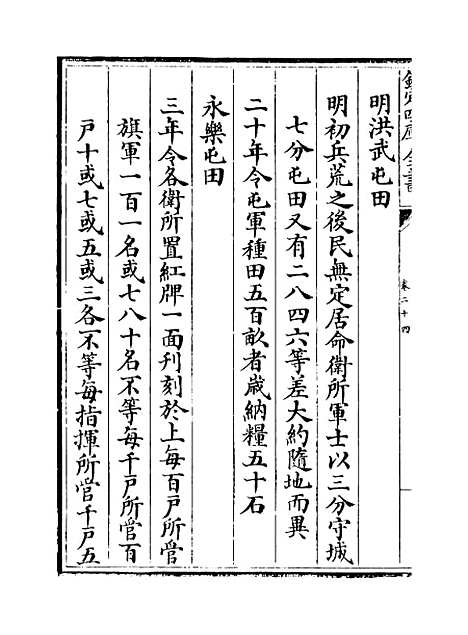 欽定四庫全書
卷二十四
明洪武屯田
明初兵荒之後民無定居命衛所軍士以三分守城
七分屯田又有二八四六等差大約隨地而異
二十年令屯軍種田五百畝者歲納糧五十石
永樂屯田
三年令各衛所置紅牌一面刋刻於上每百戶所管
旗軍一百一名或七八十名不等每千戶所管百
戶十或七或五或三各不等每指揮所管千戶五